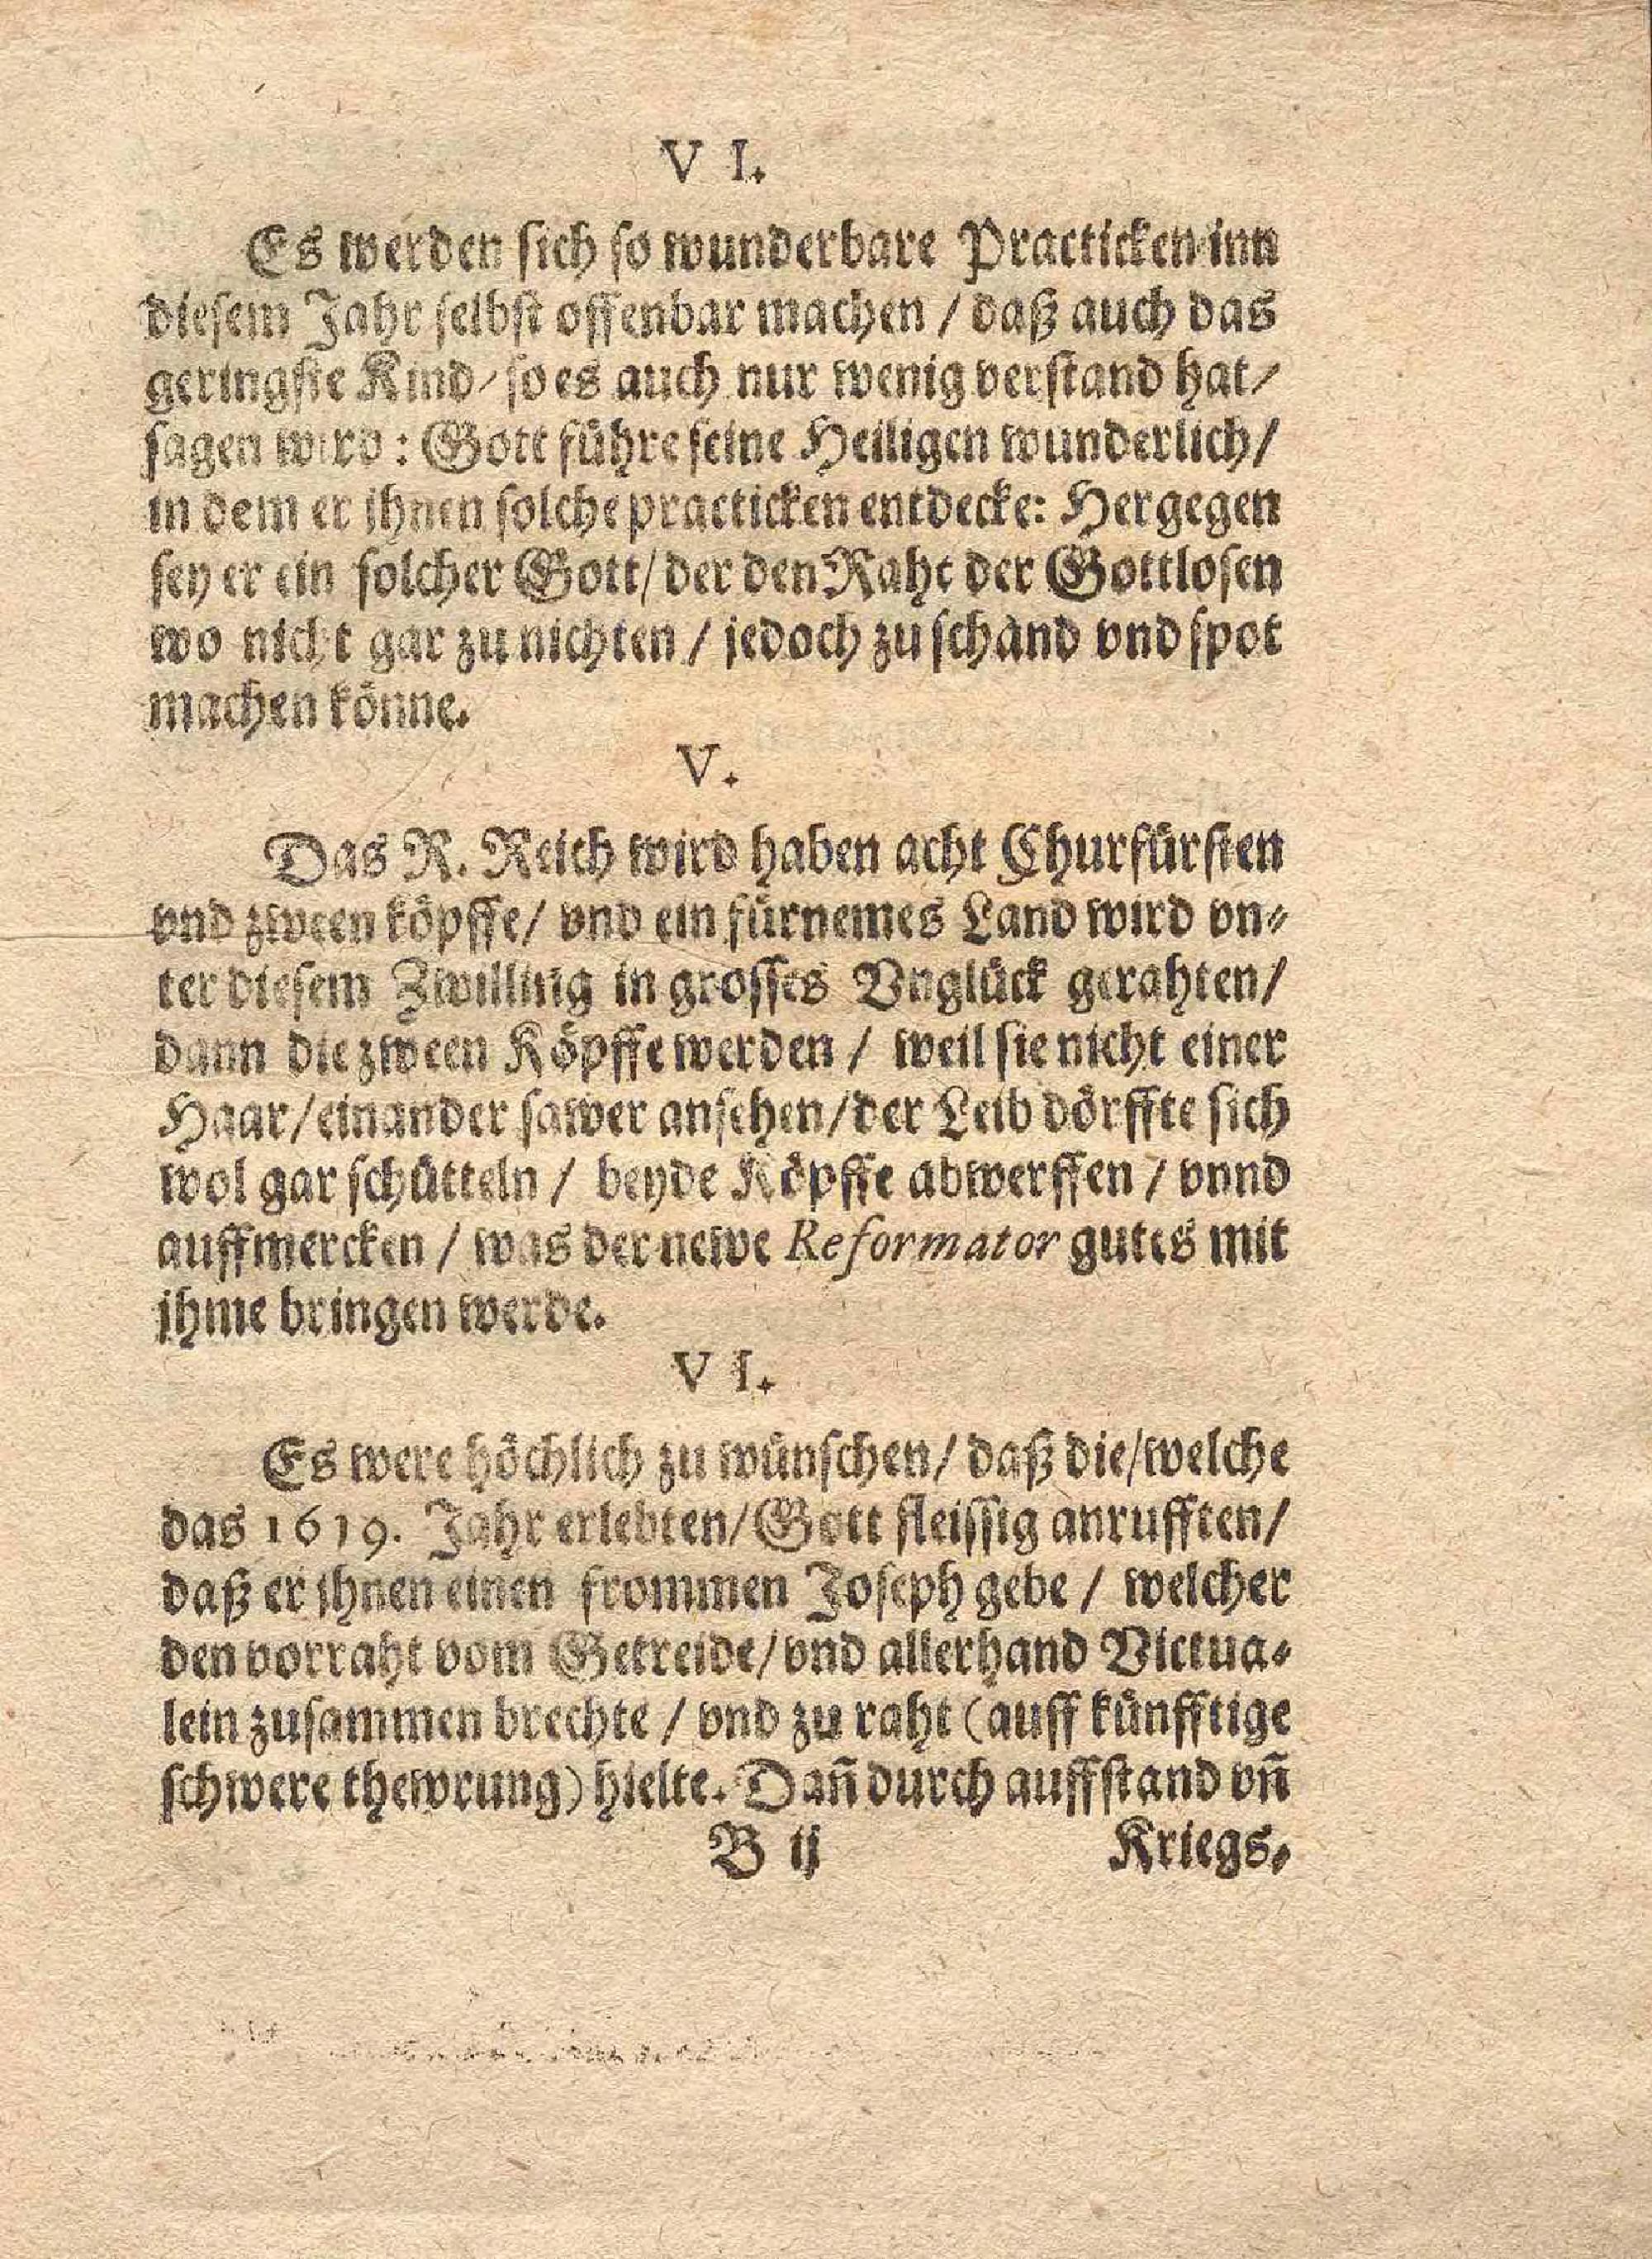 V I.
Es werden sich so wunderbare Practicken inn
diesem Jahr selbst offenbar machen / daß auch das
geringste Kind / so es auch nur wenig verstand hat /
sagen wird : Gott führe seine Heiligen wunderlich /
in dem er jhnen solche practicken entdecke: Hergegen
sey er ein solcher Gott / der den Raht der Gottlosen
wo nicht gar zu nichten / jedoch zu schand vnd spot
machen könne.
V.
Das R. Reich wird haben acht Churfürsten
vnd zween köpffe / vnd ein fürnemes Land wird vn-
ter diesem Zwilling in grosses Vnglück gerahten /
dann die zween Köpffe werden / weil sie nicht einer
Haar / einander sawer ansehen / der Leib dörffte sich
wol gar schütteln / beyde Köpffe abwerffen / vnnd
auffmercken / was der newe Reformator gutes mit
jhme bringen werde.
V I.
Es were höchlich zu wünschen / daß die / welche
das 1619. Jahr erlebten / Gott fleissig anrufften /
daß er jhnen einen frommen Joseph gebe / welcher
den vorraht vom Getreide / vnd allerhand Victua-
lein zusammen brechte / vnd zu raht (auff künfftige
schwere thewrung) hielte. Dañ durch auffstand vñ
B ij Kriegs-